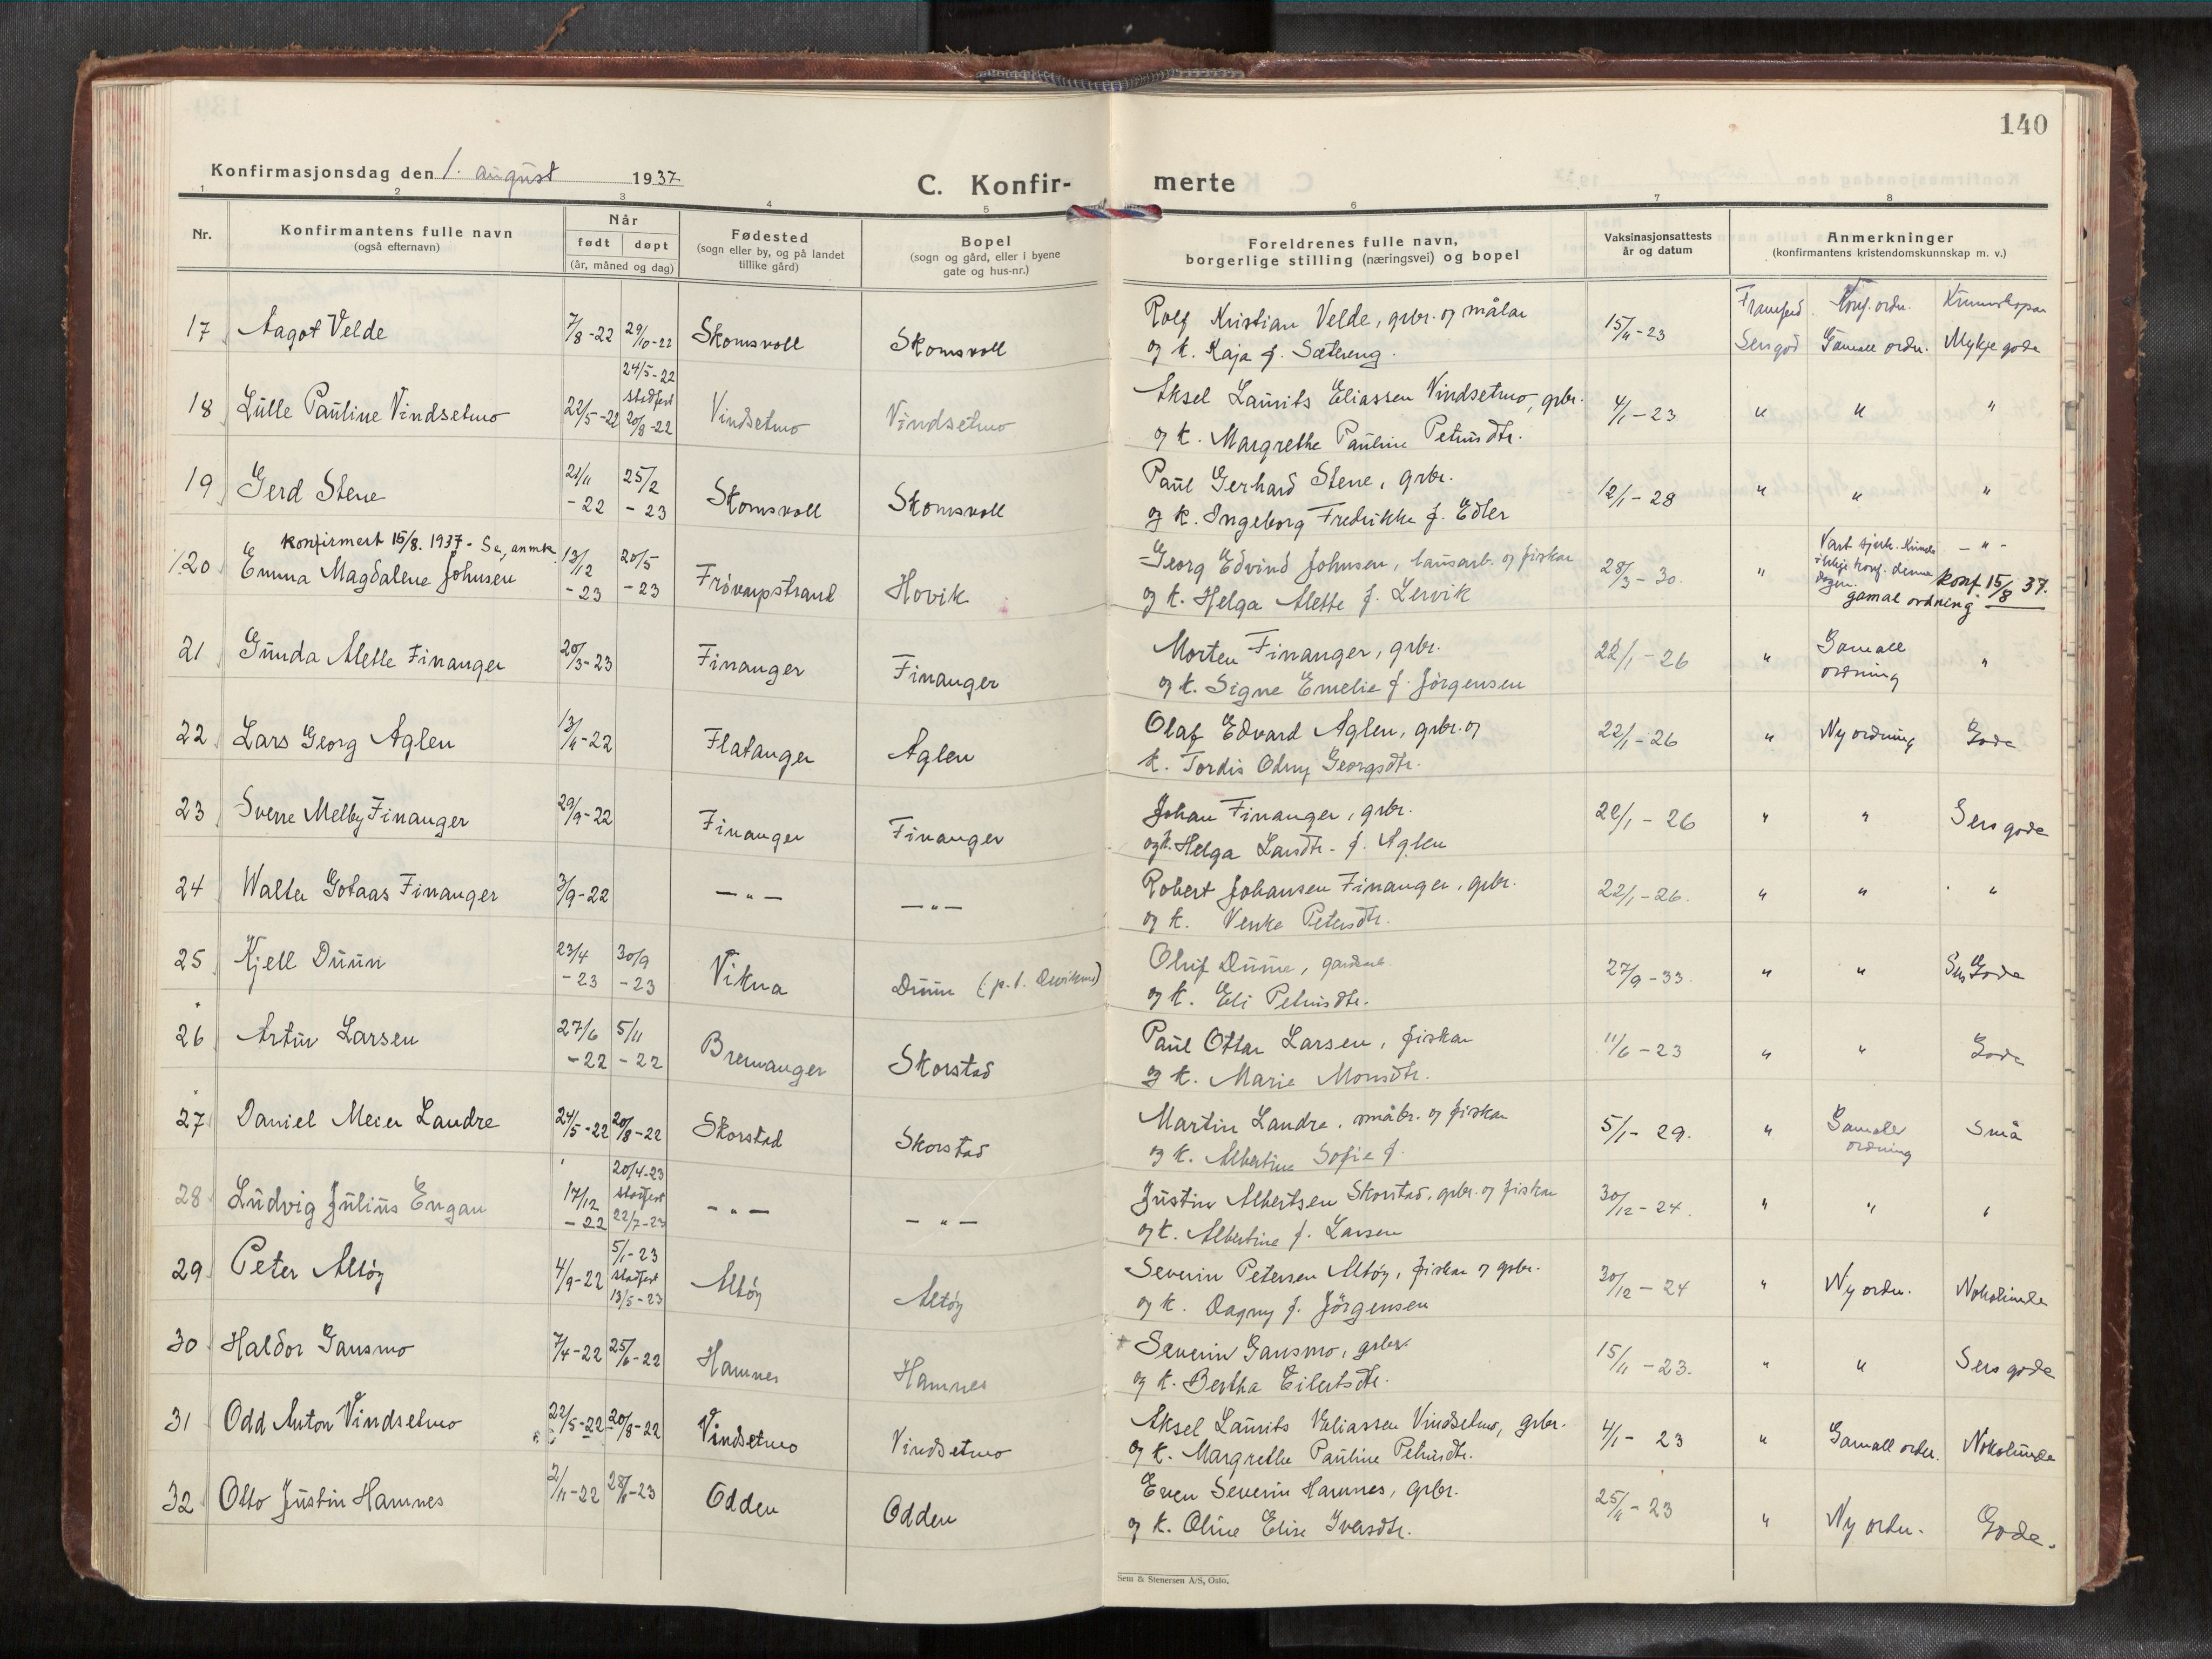 140
Konfirmasjonsdag den 1. august 1937
C. Konfir- merte
1 2 3 4 5 6 7 8
Nr.
Konfirmantens fulle navn
(også efternavn)
Når
født døpt
(år, måned og dag)
Fødested
(sogn eller by, og på landet
tillike gård)
Bopel
(sogn og gård, eller i byene
gate og hus-nr.)
Foreldrenes fulle navn,
borgerlige stilling (næringsvei) og bopel
Vaksinasjonsattests
år og datum
Anmerkninger
(konfirmantens kristendomskunnskap m. v.)
Framferd Konf. ordn. Kunnskapar
17 Aagot Velde 7/8-22 29/10-22 Skomsvoll Skomsvoll Rolf Kristian Velde, grbr. og målar 15/11-23 Sers god Gamall ordn. Mykje gode
og k. Kaja f. Sætereng.
24/5-22
stadfest
18 Lulle Pauline Vindsetmo 22/5-22 20/8-22 Vindsetmo Vindsetmo Aksel Laurits Eliassen Vindsetmo, grbr. 4/1-23 " " "
og k. Margrethe Pauline Petrusdtr.
19 Gerd Stene 21/11 25/2 Skomsvoll Skomsvoll Paul Gerhard Stene, grbr. 12/1-28 " " "
-22 -23 og k. Ingeborg Fredrikke f. Edler
konfirmert 15/8. 1937 - Se, anmk.
20 Emma Magdalene Johnsen 13/12 20/5 Hovik Georg Edvind Johnsen, lausarb. og fiskar 28/3-30. " Vart sjuk. Kunde - " -
-23 -23 og k. Helga Alette f. Lervik ikkje konf. denne
dagen. konf 15/8 37.
gamal ordning
21 Gunda Alette Finanger 20/3-23 Finanger Finanger Morten Finanger, grbr. 22/1-26 " Gamall "
og k. Signe Emelie f. Jörgensen ordning
22 Lars Georg Aglen 13/11-22 Flatanger Aglen Olaf Edvard Aglen, grbr. og 22/1-26 " Ny ordning Gode
k. Tordis Odny Georgsdtr.
23 Sverre Melby Finanger 29/9-22 Finanger Finanger Johan Finanger, grbr. 22/1-26 " " Sers gode
og k. Helga Larsdtr. f. Aglen
24 Walter Gotaas Finanger 3/9-22 - " - - " - Robert Johansen Finanger, grbr. 22/1-26. " " "
og k. Venke Petersdtr.
25 Kjell Duun 23/4 30/9 Vikna Duun Oluf Duun, 27/9-33 " " Sers Gode
-23 -23 og k. Eli Petrusdtr.
26 Artur Larsen 27/6 5/11 Bremanger Skorstad Paul Ottar Larsen, fiskar 11/6-23 " " Gode
-22 -22 og k. Marie Monsdtr.
27 Daniel Meier Landre 24/5-22 20/8-22 Skorstad Skorstad Martin Landre, småbr. og fiskar 5/1-29. " Gamall Små
og k. Albertine Sofie f. ordning
20/4-23
stadfest
28 Ludvig Julius Engan 17/12 22/7-23 - " - - " - Justin Albertsen Skorstad, grbr. og fiskar 30/12-24. " " "
-22 og k. Albertine f. Larsen
5/1-23
stadfest
29 Peter Altöy 4/9-22 13/5-23 Altöy Altöy Severin Petersen Altöy, fiskar og grbr. 30/12-24 " Ny ordn. Nokolunde
og k. Dagny f. Jörgensen
30 Haldor Gansmo 7/4-22 25/6-22 Hamnes Hamnes + Severin Gansmo, grbr. 15/11-23. " " Sers gode
og k. Bertha Eilertsdtr.
31 Odd Anton Vindsetmo 22/5-22 20/8-22 Vindsetmo Vindsetmo Aksel Laurits Eliassen Vindsetmo, grbr. 4/1-23 " Gamall ordn. Nokolunde
og k. Margrethe Pauline Petrusdtr.
32 Otto Justin Hamnes 2/11-22 Odden Odden Even Severin Hamnes, grbr. 25/11-23 " Ny ordn. Gode.
og k. Oline Elise Iversdtr.
Sem & Stenersen A/S, Oslo.